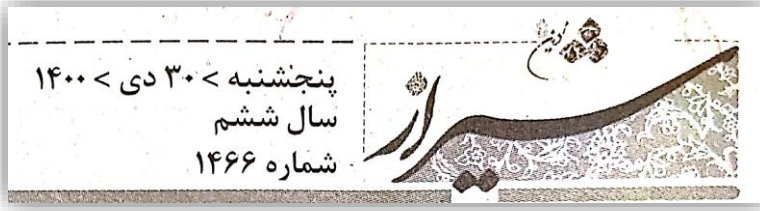 شیراز
پنجشنبه > ۳۰ دی > ۱۴۰۰
سال ششم
شماره ۱۴۶۶